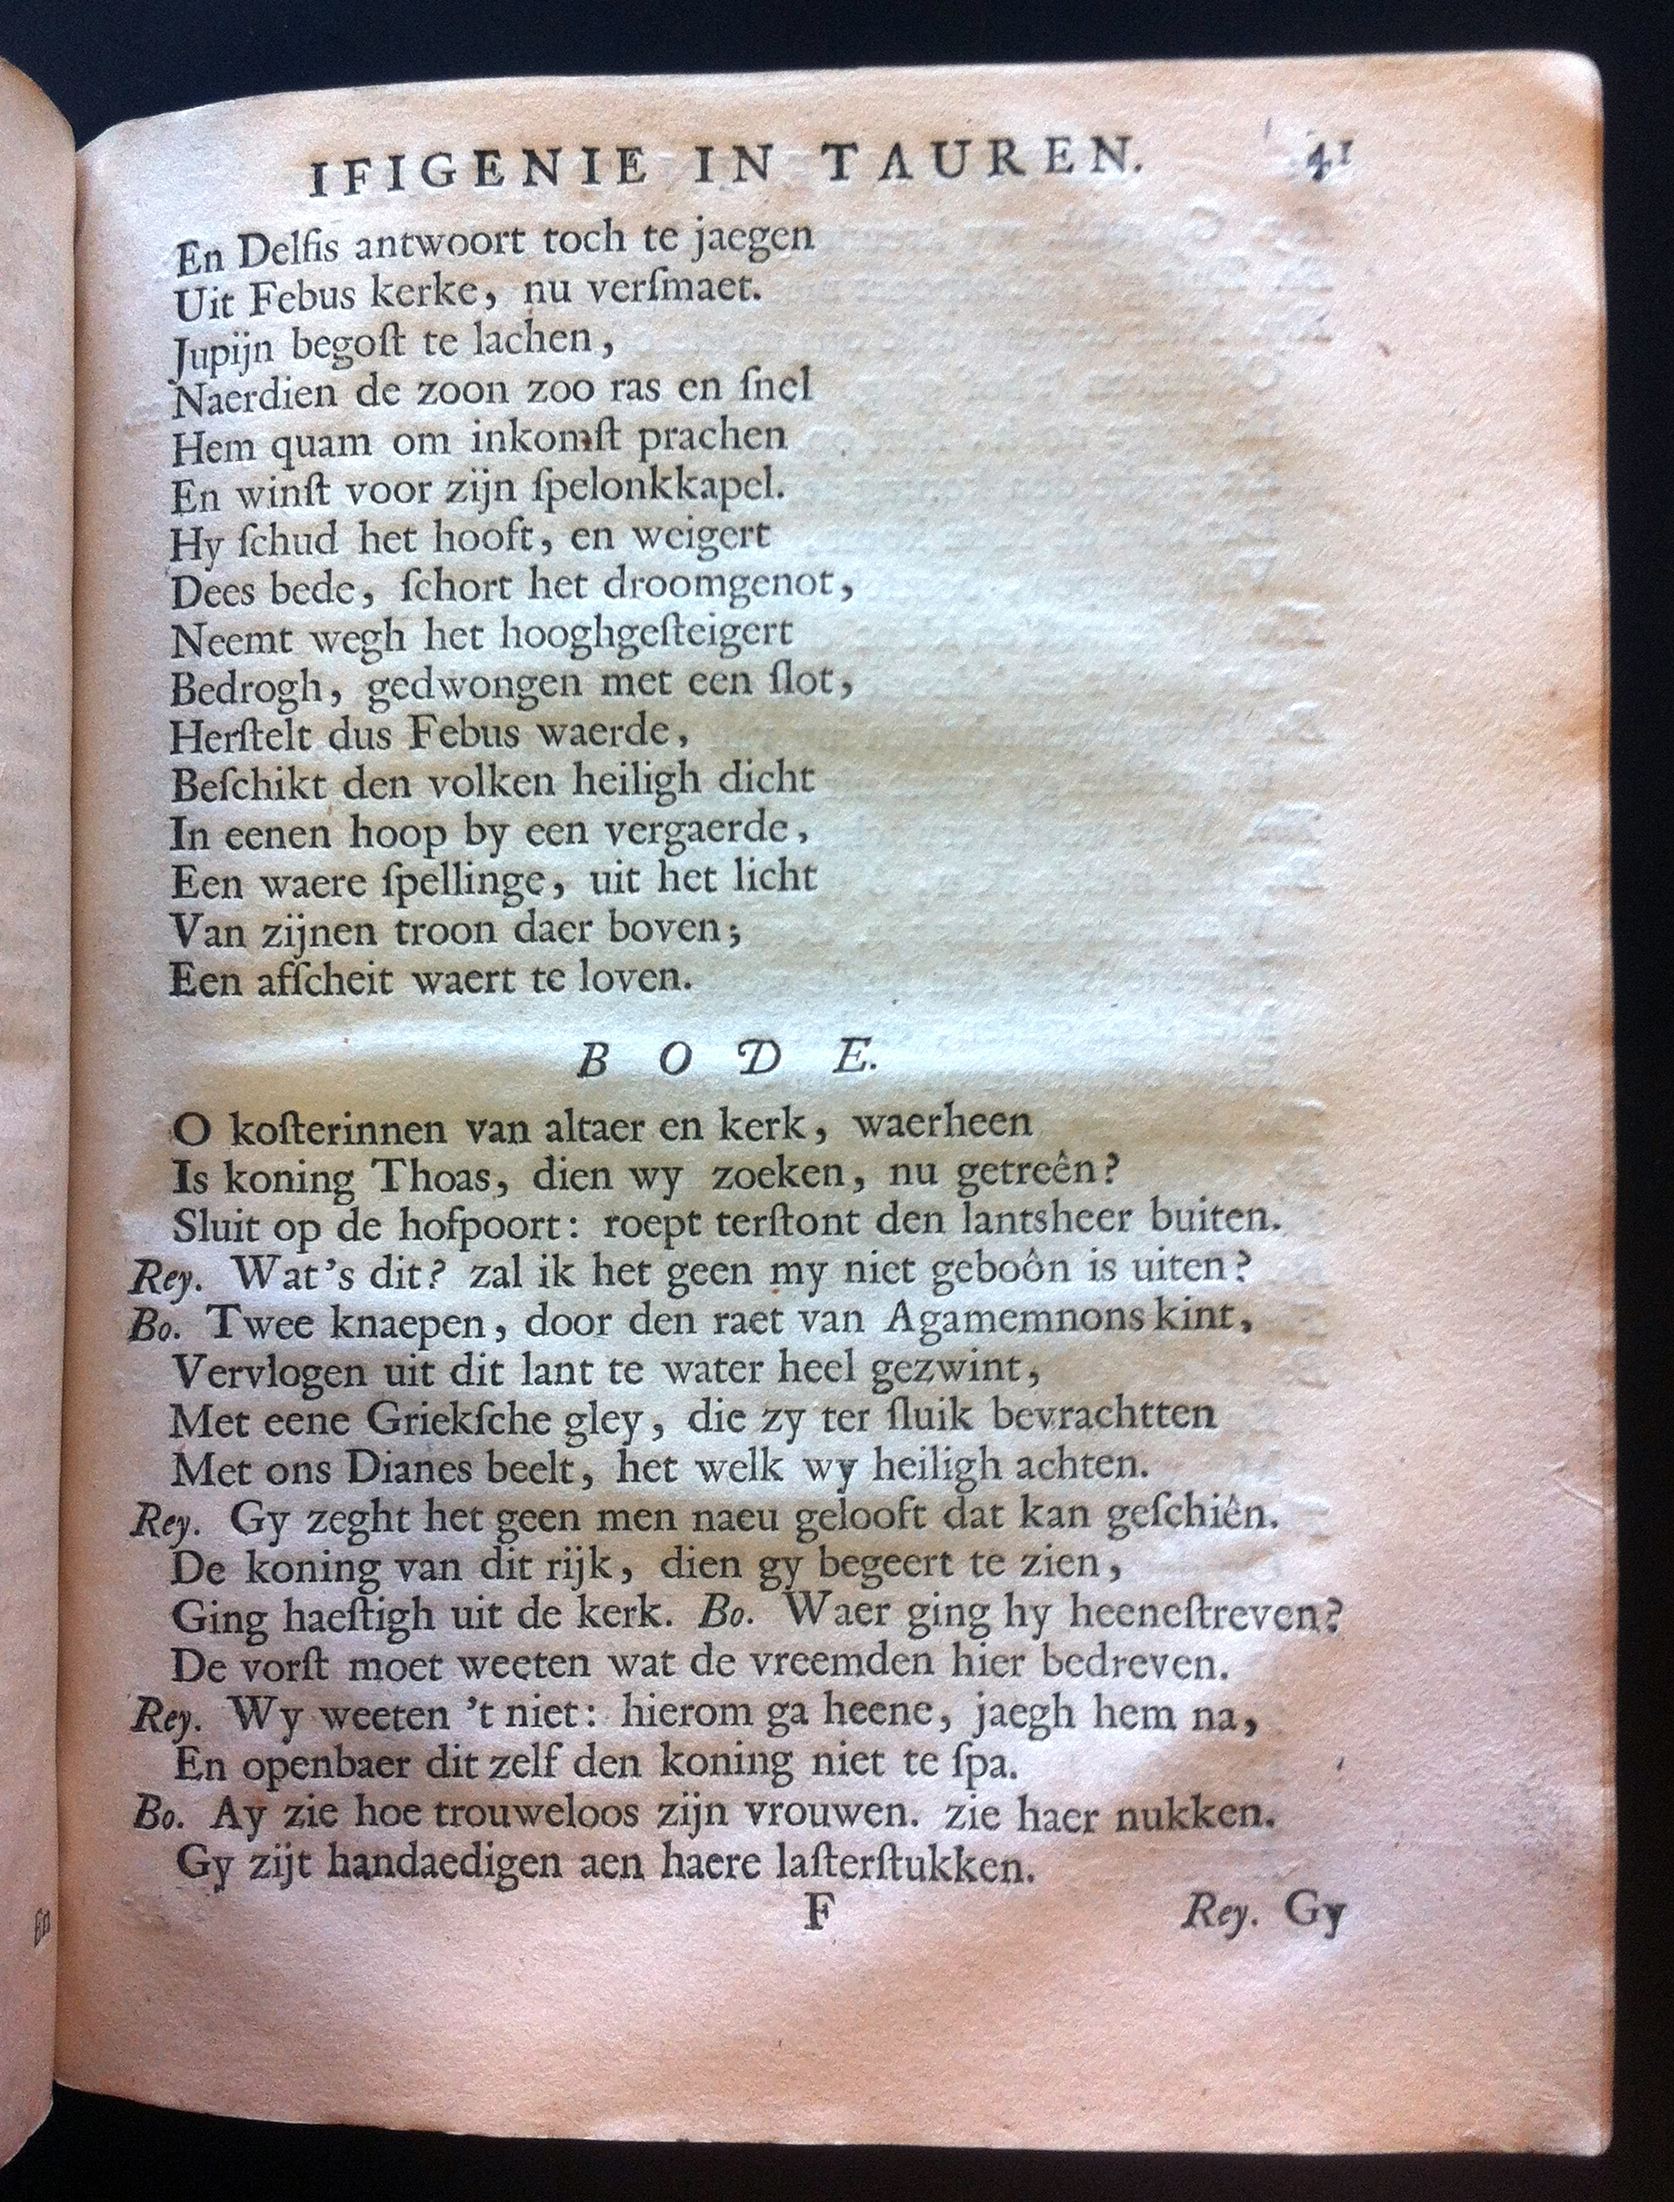 IFIGENIE IN TAUREN. 41
En Delfis antwoort toch te jaegen
Uit Febus kerke, nu verſmaet.
Jupijn begoſt te lachen,
Naerdien de zoon zoo ras en ſnel
Hem quam om inkomſt prachen
En winſt voor zijn ſpelonkkapel.
Hy ſchud het hooft, en weigert
Dees bede, ſchort het droomgenot,
Neemt wegh het hooghgeſteigert
Bedrogh, gedwongen met een ſlot,
Herſtelt dus Febus waerde,
Beſchikt den volken heiligh dicht
In eenen hoop by een vergaerde,
Een waere ſpellinge, uit het licht
Van zijnen troon daer boven;
Een afſcheit waert te loven.
BODE.
O koſterinnen van altaer en kerk, waerheen
Is koning Thoas, dien wy zoeken, nu getreên?
Sluit op de hofpoort: roept terſtont den lantsheer buiten.
Rey. Wat's dit? zal ik het geen my niet geboôn is uiten?
Bo. Twee knaepen, door den raet van Agamemnons kint,
Vervlogen uit dit lant te water heel gezwint,
Met eene Griekſche gley, die zy ter ſluik bevrachtten
Met ons Dianes beelt, het welk wy heiligh achten.
Rey. Gy zeght het geen men naeu gelooft dat kan geſchiên.
De koning van dit rijk, dien gy begeert te zien,
Ging haeſtigh uit de kerk. Bo. Waer ging hy heeneſtreven?
De vorſt moet weeten wat de vreemden hier bedreven.
Rey. Wy weeten 't niet: hierom ga heene, jaegh hem na,
En openbaer dit zelf den koning niet te ſpa.
Bo. Ay zie hoe trouweloos zijn vrouwen. zie haer nukken.
Gy zijt handaedigen aen haere laſterſtukken.
F Rey. Gy
En